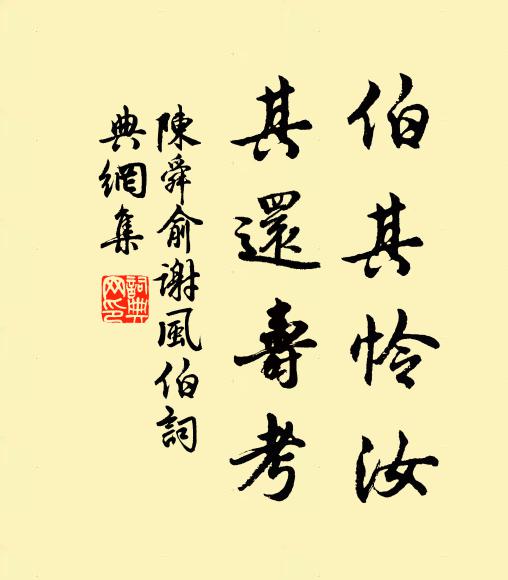 伯其怜汝
其還壽考
陳舜俞谢風伯詞
典網集
詞典
网印